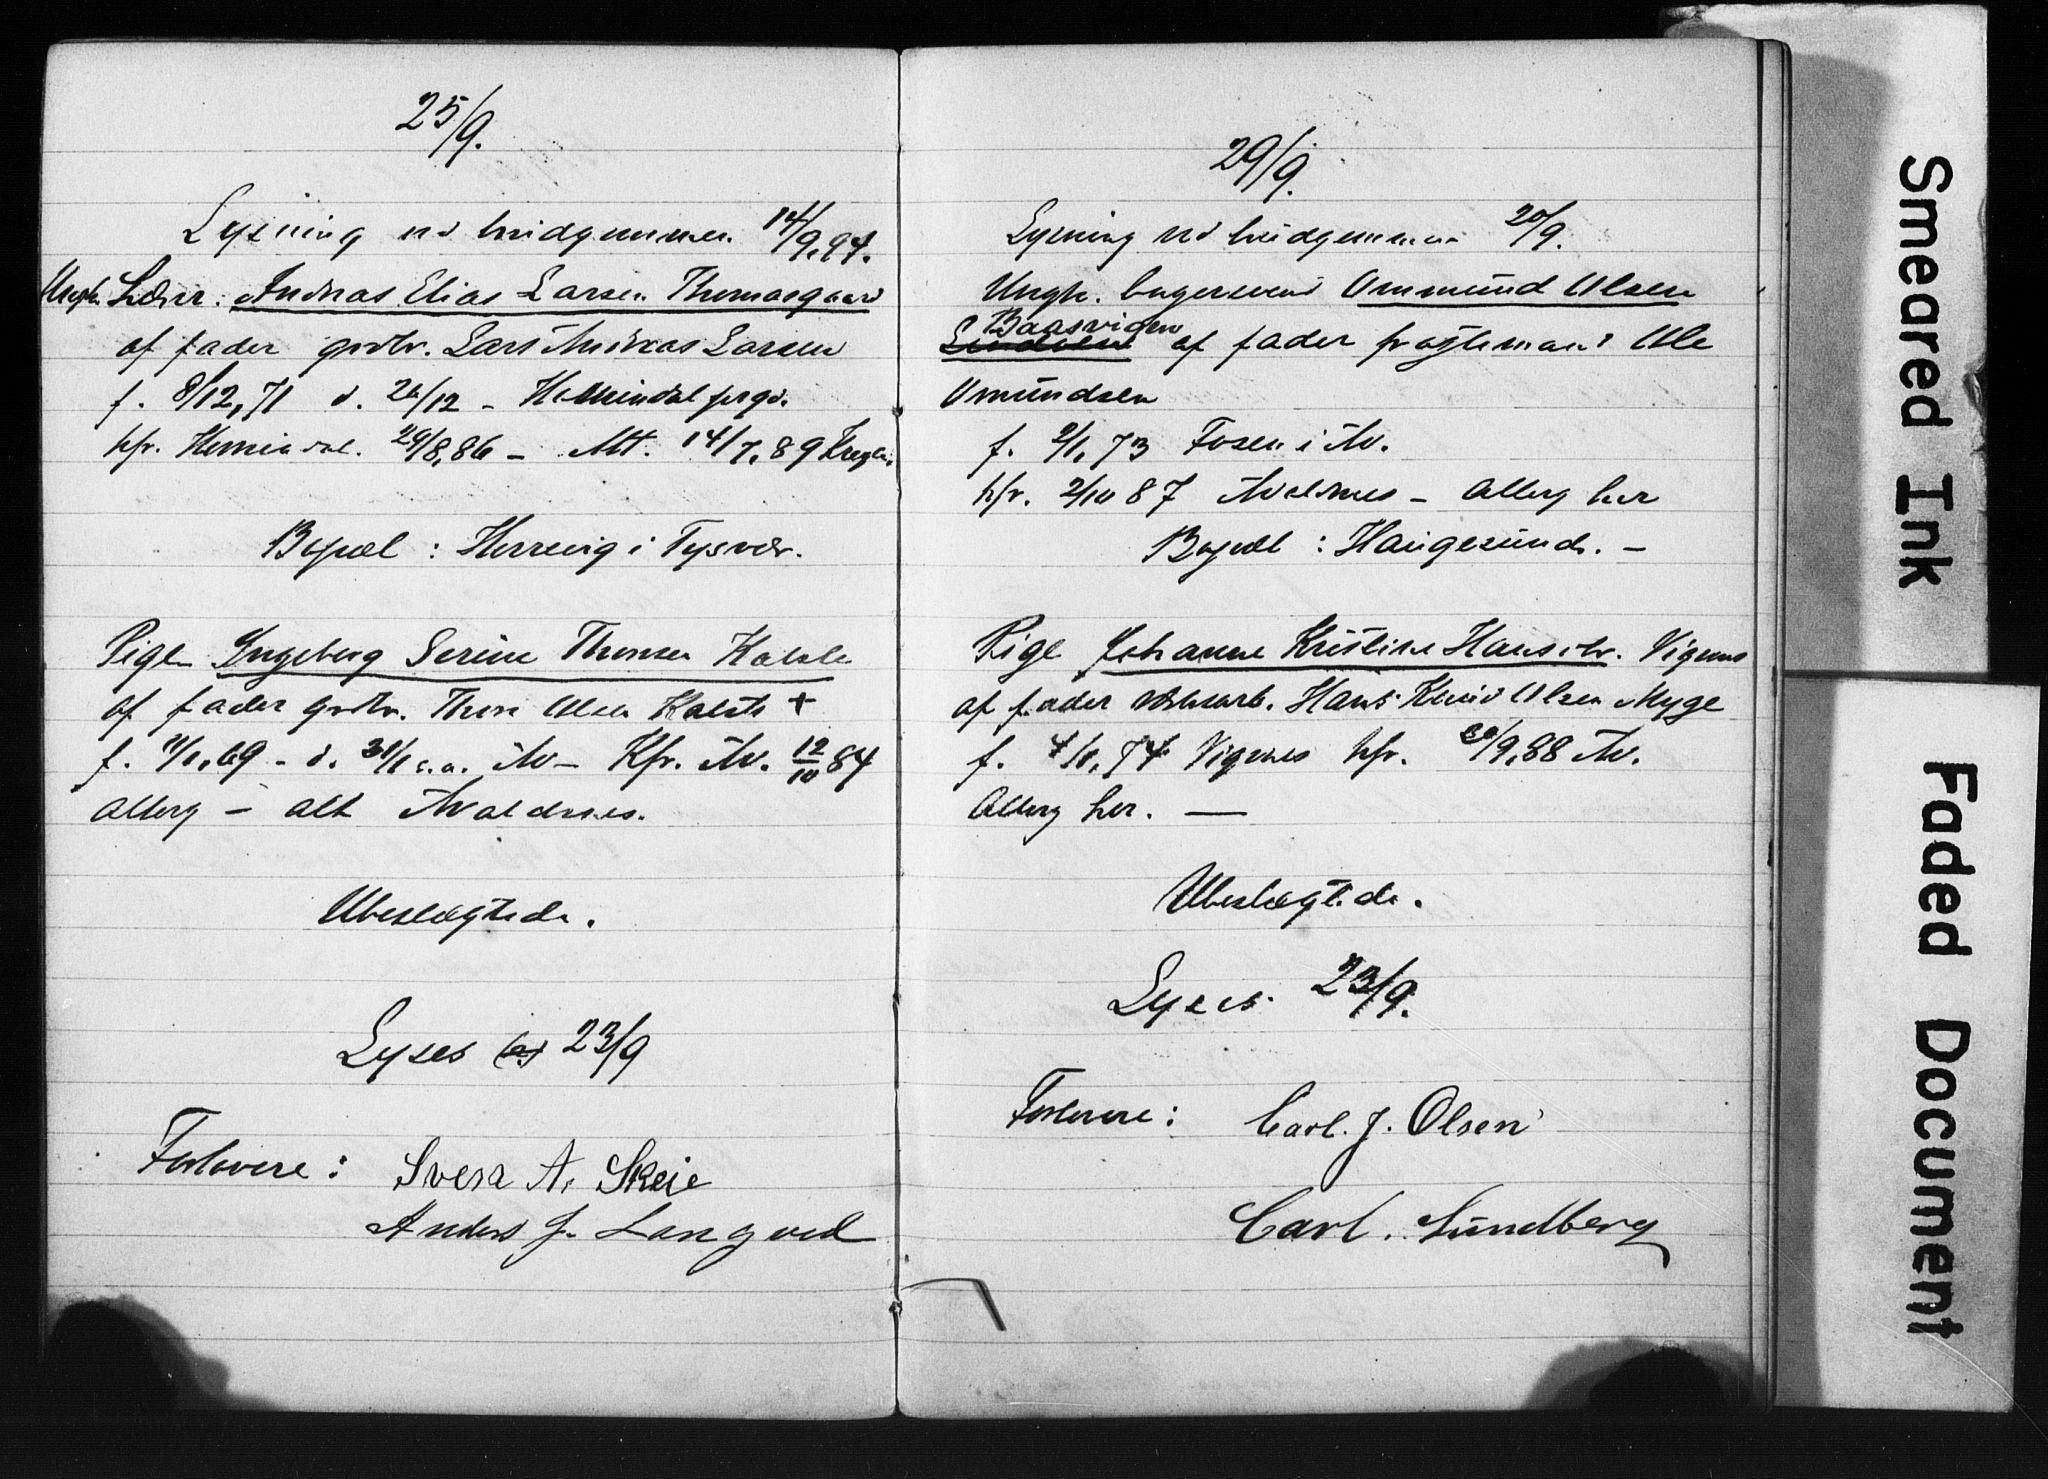 25/9.
Lysning ved brudgommen 14/9.94.
Ungk. Lærer. Andreas Elias Larsen Thomasgaard
af fader grdbr. Lars Andreas Larsen
f. 8/12,71 d. 26/12 –
kfr. 29/8,86 – Att. 14/7,89
Bopæl: Hervig i Tysvær.
Pige Ingeborg Serine Thorsen Kalstø
af fader grdbr. Thore Olsen Kalstø +
f. 11/1,69 – d. 31/1 s.a. Av – Kfr. Av. 12/10 84
alterg – alt Avaldsnes.
Ubeslægtede.
Lyses 23/9
Forlovere: Svera A. Skeie
Anders J. Langved
29/9.
Lysning ved brudgommen 20/9.
Ungk. bagersvend Ommund Olsen
Baasvigen af fader fragtemand Ole
Omundsen
f. 2/1,73 Fosen i Av.
kfr. 2/10 87 Avaldsnes – alterg her
Bopæl: Haugesund. –
Pige Johanne Kristine Hansdtr. Vignes
af fader Hans Knud Olsen Myge
f. 4/10,74 Vignes kfr. 30/9,88 Av.
Alterg her. —
Ubeslægtede.
Lyses 23/9.
Forlovere: Carl. J. Olsen
Carl. Sundberg
Smeared Ink
Faded Document